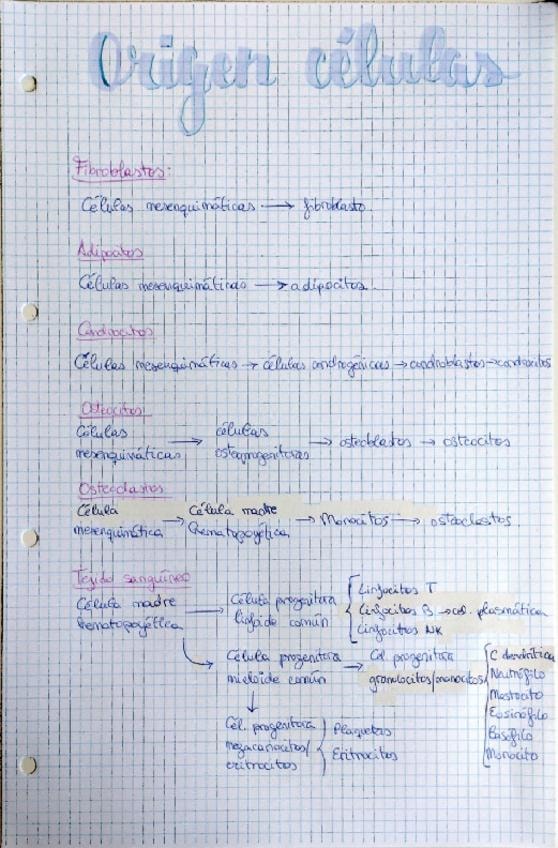 Origen células
Fibroblastos:
Células mesenquimáticas → fibroblasto.
Adipocitos
Células mesenquimáticas → adipocitos.
Condrocitos
Células mesenquimáticas → células condrogénicas → condroblastos → condrocitos
Osteocitos:
Células mesenquimáticas → células osteoprogenitoras → osteoblastos → osteocitos
Osteoclastos
Célula mesenquimática → Célula madre hematopoyética → Monocitos → osteoclastos
Tejido sanguíneo
Célula madre hematopoyética → Célula progenitora linfoide común
Linfocitos T
Linfocitos B → cel. plasmática
Linfocitos NK
Célula progenitora mieloide común → Cél progenitora granulocitos/monocitos
C dendrítica
Neutrófilo
Mastocito
Eosinófilo
Basófilo
Monocito
Cél. progenitora megacariocitos/eritrocitos
Plaquetas
Eritrocitos